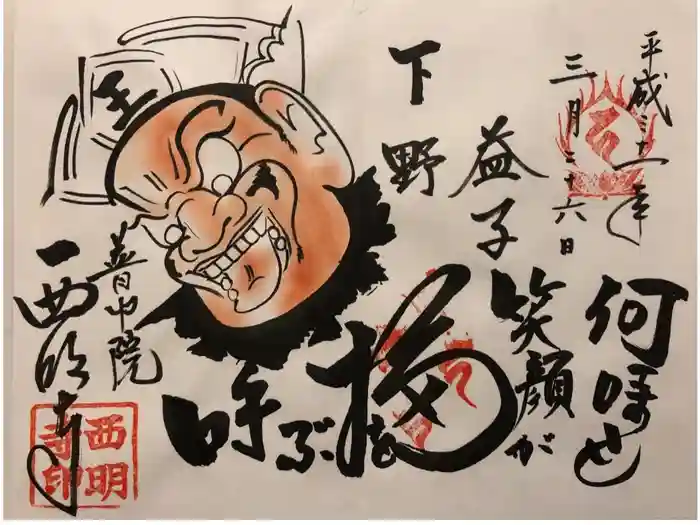 平成三十一年
三月二十六日
何時も
笑顔が
福を
呼ぶ
下野
益子
王
普門院
西明寺
西明寺印